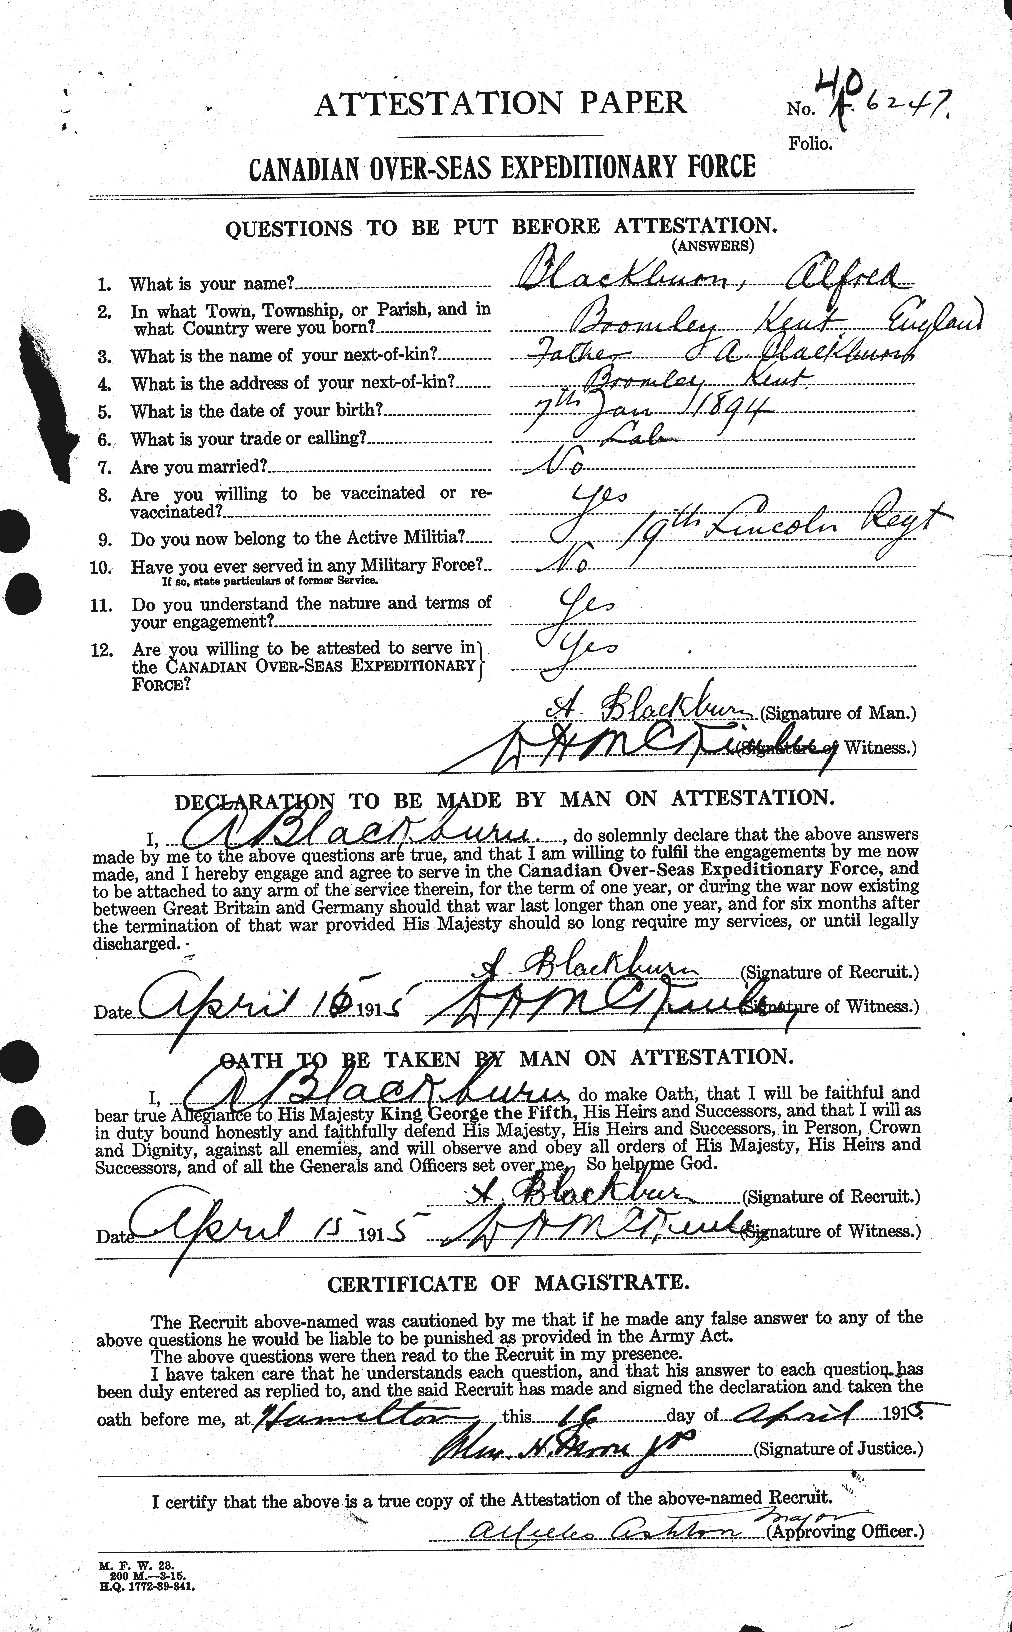 ATTESTATION PAPER
No. 40 A. 6247.
Folio.
CANADIAN OVER-SEAS EXPEDITIONARY FORCE
QUESTIONS TO BE PUT BEFORE ATTESTATION.
(ANSWERS)
1. What is your name? Blackburn, Alfred
2. In what Town, Township, or Parish, and in
what Country were you born? Bromley Kent, England
3. What is the name of your next-of-kin? Father A Blackburn
4. What is the address of your next-of-kin? Bromley Kent
5. What is the date of your birth? 7th Jan 1894
6. What is your trade or calling? Lab
7. Are you married? No
8. Are you willing to be vaccinated or re-
vaccinated? Yes
9. Do you now belong to the Active Militia? 19th Lincoln Regt
10. Have you ever served in any Military Force? No
If so, state particulars of former Service.
11. Do you understand the nature and terms of
your engagement? Yes
12. Are you willing to be attested to serve in
the CANADIAN OVER-SEAS EXPEDITIONARY
FORCE? Yes
A. Blackburn (Signature of Man.)
(Signature of Witness.)
DECLARATION TO BE MADE BY MAN ON ATTESTATION.
I, A Blackburn, do solemnly declare that the above answers
made by me to the above questions are true, and that I am willing to fulfil the engagements by me now
made, and I hereby engage and agree to serve in the Canadian Over-Seas Expeditionary Force, and
to be attached to any arm of the service therein, for the term of one year, or during the war now existing
between Great Britain and Germany should that war last longer than one year, and for six months after
the termination of that war provided His Majesty should so long require my services, or until legally
discharged.
A. Blackburn (Signature of Recruit.)
Date April 15 1915 (Signature of Witness.)
OATH TO BE TAKEN BY MAN ON ATTESTATION.
I, A Blackburn, do make Oath, that I will be faithful and
bear true Allegiance to His Majesty King George the Fifth, His Heirs and Successors, and that I will as
in duty bound honestly and faithfully defend His Majesty, His Heirs and Successors, in Person, Crown
and Dignity, against all enemies, and will observe and obey all orders of His Majesty, His Heirs and
Successors, and of all the Generals and Officers set over me. So help me God.
A. Blackburn (Signature of Recruit.)
Date April 15 1915 (Signature of Witness.)
CERTIFICATE OF MAGISTRATE.
The Recruit above-named was cautioned by me that if he made any false answer to any of the
above questions he would be liable to be punished as provided in the Army Act.
The above questions were then read to the Recruit in my presence.
I have taken care that he understands each question, and that his answer to each question has
been duly entered as replied to, and the said Recruit has made and signed the declaration and taken the
oath before me, at Hamilton this 16 day of April 1915
Wm. H. Moore JP (Signature of Justice.)
I certify that the above is a true copy of the Attestation of the above-named Recruit.
Ashton Major (Approving Officer.)
M. F. W. 23.
200 M.—3-15.
H.Q. 1772-39-841.